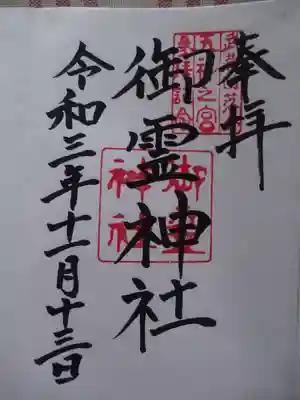 奉拝
御霊神社
令和三年十一月十三日
御霊
神社